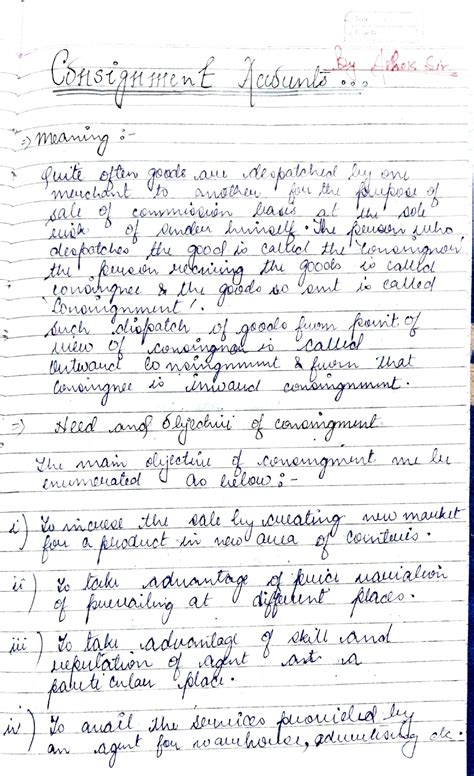 By Ashok Sir.
Consignment Accounts...
=> Meaning :-
Quite often goods are despatched by one
merchant to another for the purpose of
sale of commission basis at the sole
risk of sender himself. The person who
despatches the good is called the 'consignor'
the person receiving the goods is called
consignee & the goods so sent is called
'Consignment'.
Such dispatch of goods from point of
view of consignor is called
Outward Consignment & from that
consignee is inward consignment.
=> Need and Objective of consignment
The main objective of consignment me be
enumerated as below :-
i) To increse the sale by creating new market
for a product in new area of countries.
ii) To take advantage of price variation
of prevailing at different places.
iii) To take advantage of skill and
reputation of agent at a
particular place.
iv) To avail the services provided by
an agent for warehouse, advertising etc.